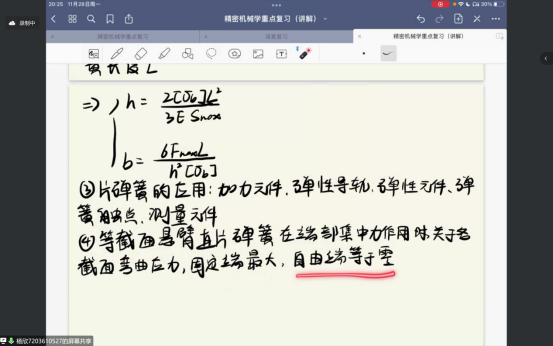 20:25 11月28日周一
精密机械学重点复习（讲解）
30%
录制中
精密机械学重点复习（讲解）
精密机械学重点复习（讲解）
=> h = 2[σb]L² / 3E Smax
b = 6FmaxL / h²[σb]
③片弹簧的应用：加力元件、弹性导轨、弹性元件、弹
簧触点、测量元件
④等截面悬臂直片弹簧在端部集中力作用时，关于各
截面弯曲应力，固定端最大，自由端等于零
杨欣7203610527的屏幕共享